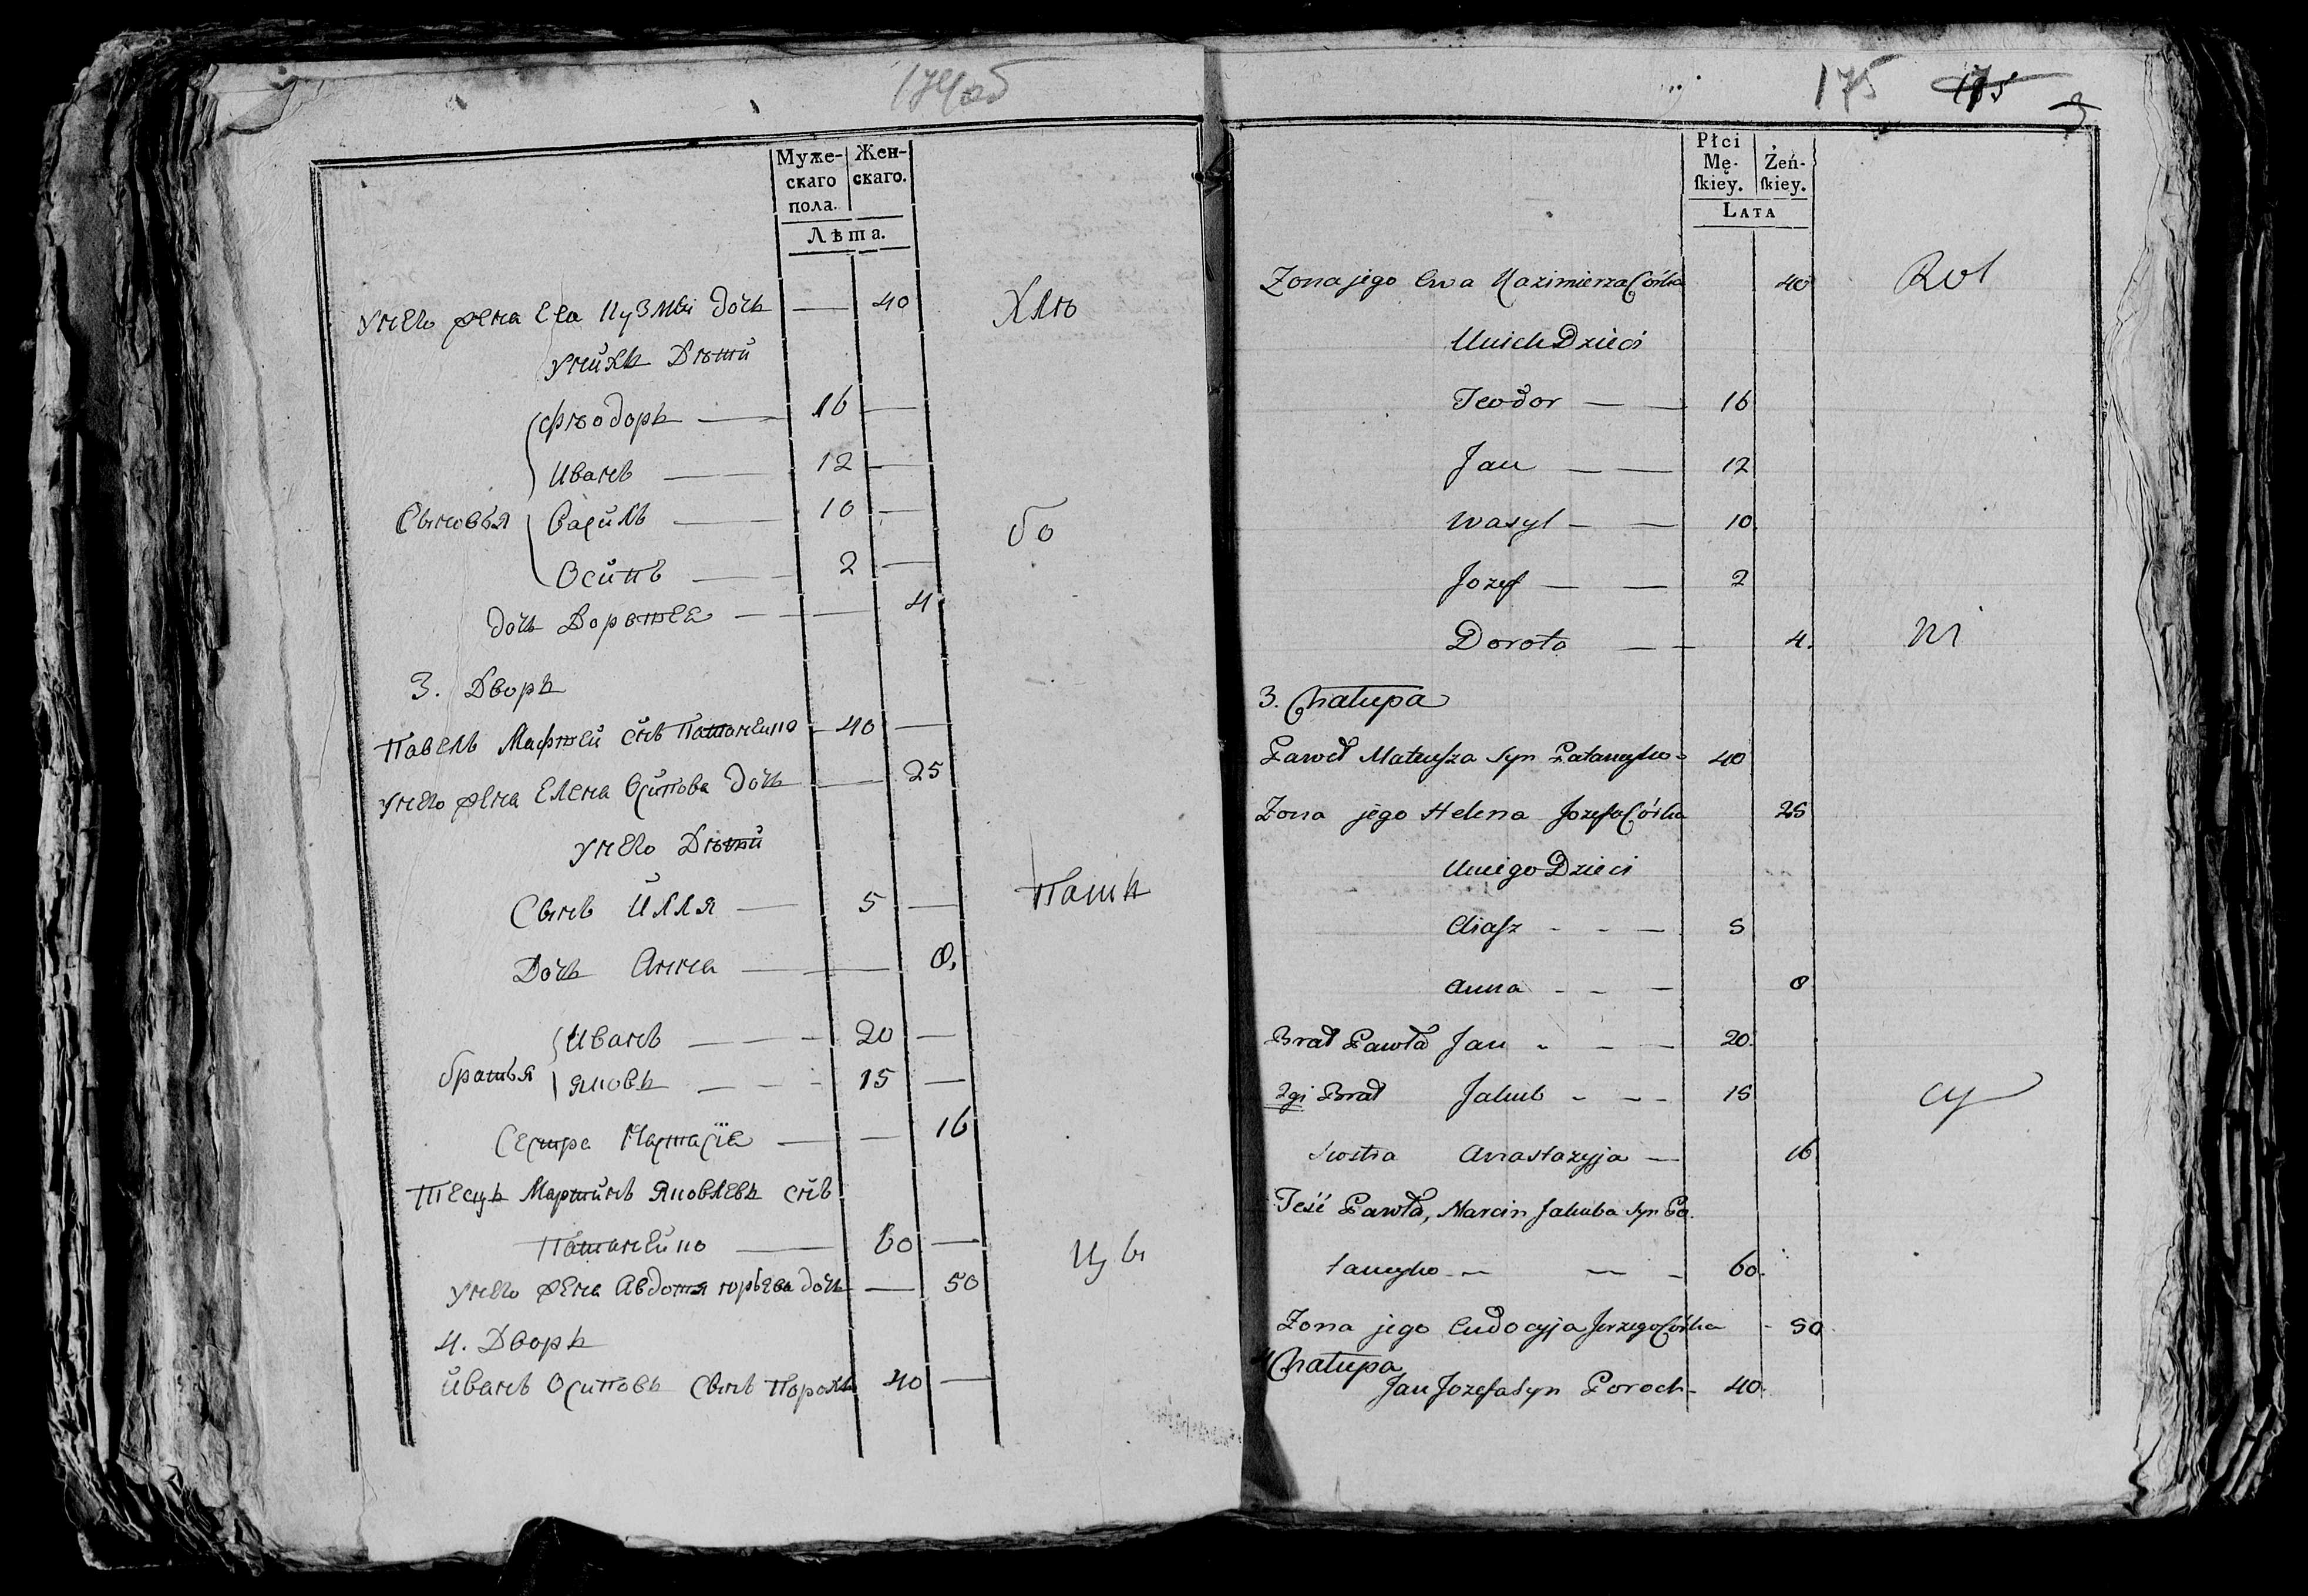 174об
Муже-
скаго
пола.
Жен-
скаго.
Лѣта.
Унего жена Ева Кузмы дочь — 40
Хлѣ
Унихъ Дѣти
Сыновья
Фѣодоръ — 16 —
Иванъ — 12 —
Василь — 10 —
бо
Осипъ — 2 —
дочь Доротея — 4
3. Дворъ
Павелъ Мафтей снъ Патанейко — 40 —
Унего жена Елена Осипова дочь — 25
Унего Дѣти
Сынъ Илля — 5 —
Пашъ
Дочь Анна — 8.
братья
Иванъ — 20 —
Яковъ — 15 —
Сестра Настасїя — 16
Тесць Мартинъ Яковлевъ снъ
Патанейко — 60 —
цы
Унего жена Авдотя юрьева дочь — 50
4. Дворъ
Иванъ Осиповъ Сынъ Порохъ 40 —
175 175
3
Płci
Mę-
ſkiey.
Żeń-
ſkiey.
LATA
Zona jego Ewa Kazimierza Córka 40
Rol
Unich Dzieci
Teodor — — 16
Jan — — 12
Wasyl — — 10
Jozef — — 2
Dorota — — 4.
ni
3. Chałupa
Paweł Mateuſza Syn Pataneyko - 40
Zona jego Helena Jozefa Córka 25
Uniego Dzieci
Eliaſz - - — 5
Anna - - — 8
Brat Pawła Jan - - — 20.
2gi Brat Jakub - - - 15
cy
Siostra Anastazyja — 16
Teść Pawła, Marcin Jakuba Syn Pa.
taneyko - — — - 60.
Zona jego Eudocyja Jerzego Córka - 50
4 Chałupa
Jan Jozefa Syn Poroch - 40.